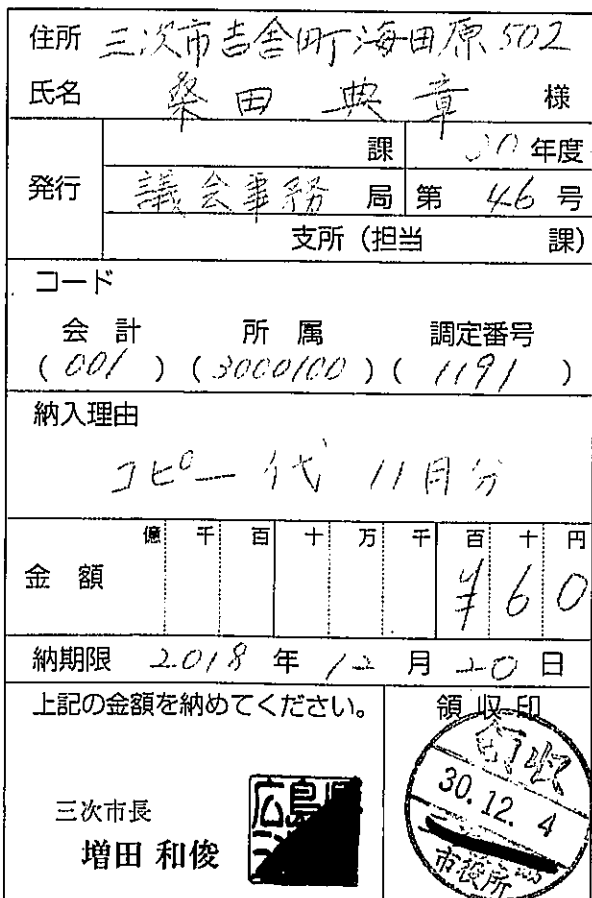 住所 三次市吉舎町海田原502
氏名 桑田 典章 様
発行
課 30年度
議会事務局 第 46 号
支所 (担当 課)
コード
会計 所属 調定番号
(001) (3000100) (1191)
納入理由
コピー代 11月分
億 千 百 十 万 千 百 十 円
金額 ¥60
納期限 2018年12月20日
上記の金額を納めてください。
領収印
三次市長
増田 和俊
広島県
領収
30.12.4
市役所